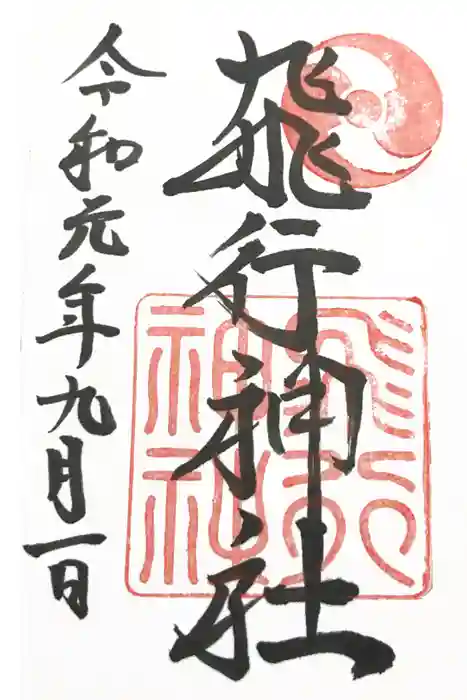 飛行神社
令和元年九月一日
飛行
神社